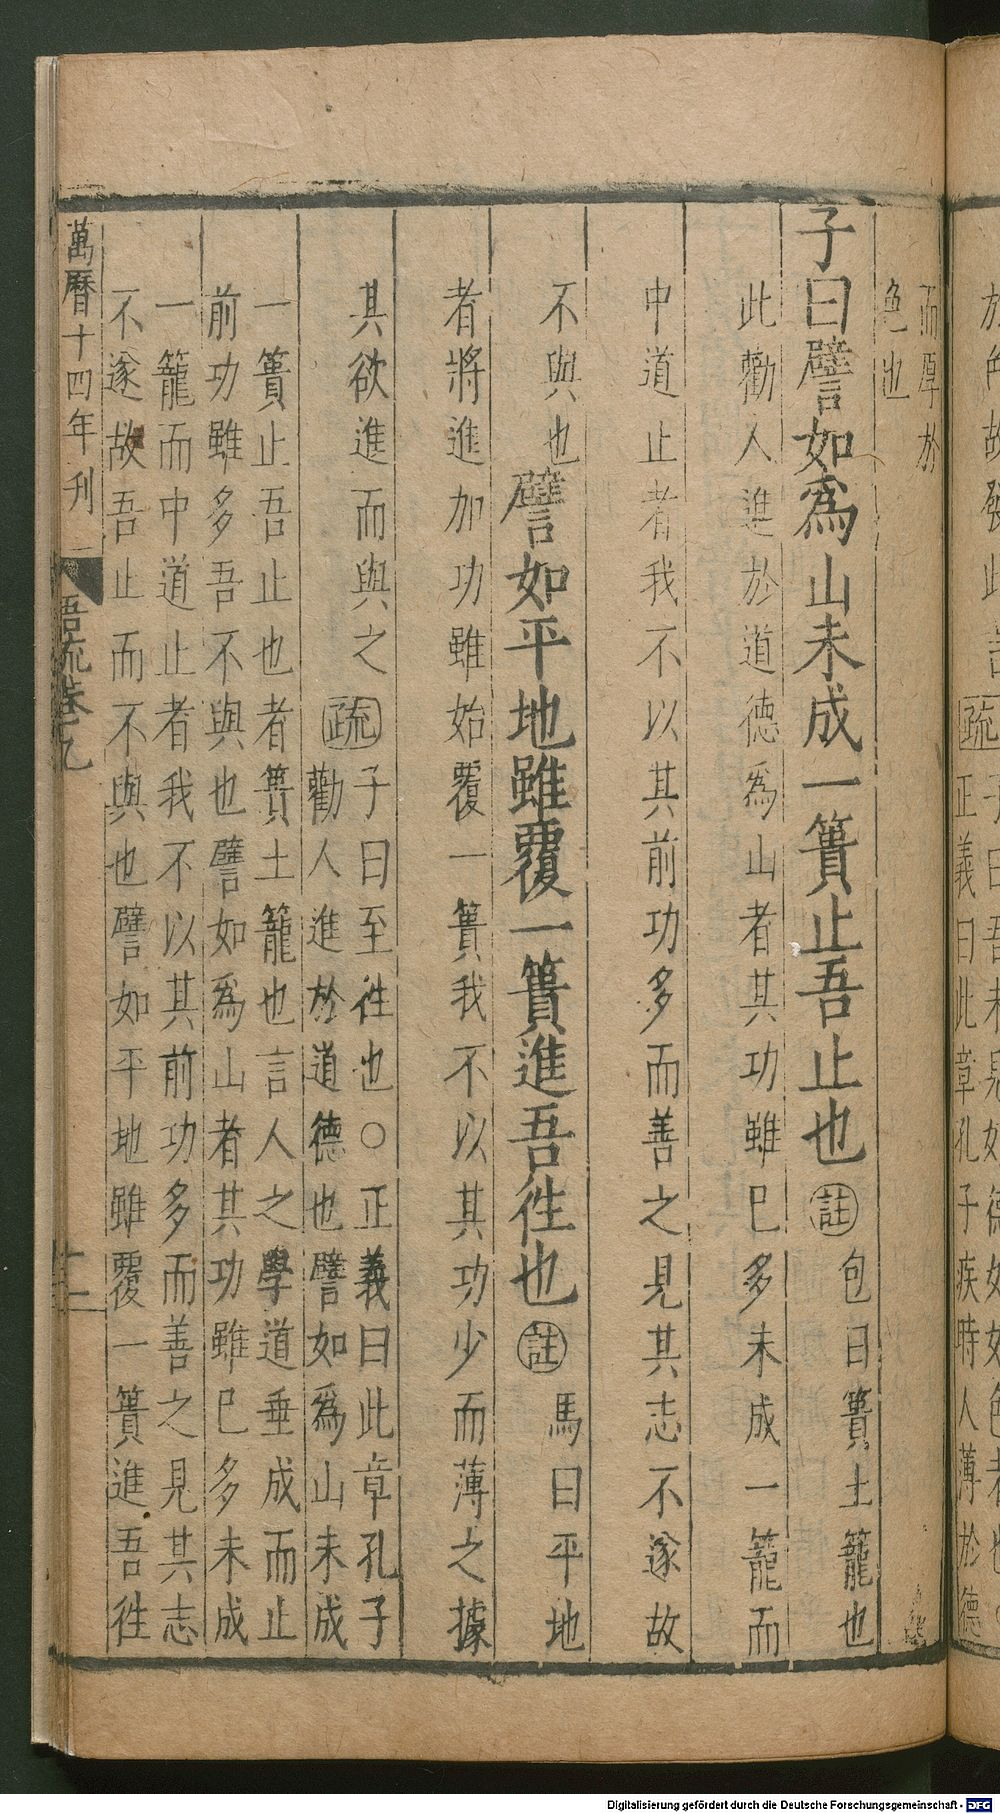 正義曰此章孔子疾時人薄於德
而厚於
色也
子曰譬如爲山未成一簣止吾止也 註 包曰簣土籠也
此勸人進於道德爲山者其功雖已多未成一籠而
中道止者我不以其前功多而善之見其志不遂故
不與也 譬如平地雖覆一簣進吾往也 註 馬曰平地
者將進加功雖始覆一簣我不以其功少而薄之據
其欲進而與之 疏 子曰至往也○正義曰此章孔子
勸人進於道德也譬如爲山未成
一簣止吾止也者簣土籠也言人之學道垂成而止
前功雖多吾不與也譬如爲山者其功雖已多未成
一籠而中道止者我不以其前功多而善之見其志
不遂故吾止而不與也譬如平地雖覆一簣進吾往
萬曆十四年刊 語疏卷九 十二
Digitalisierung gefördert durch die Deutsche Forschungsgemeinschaft - DFG